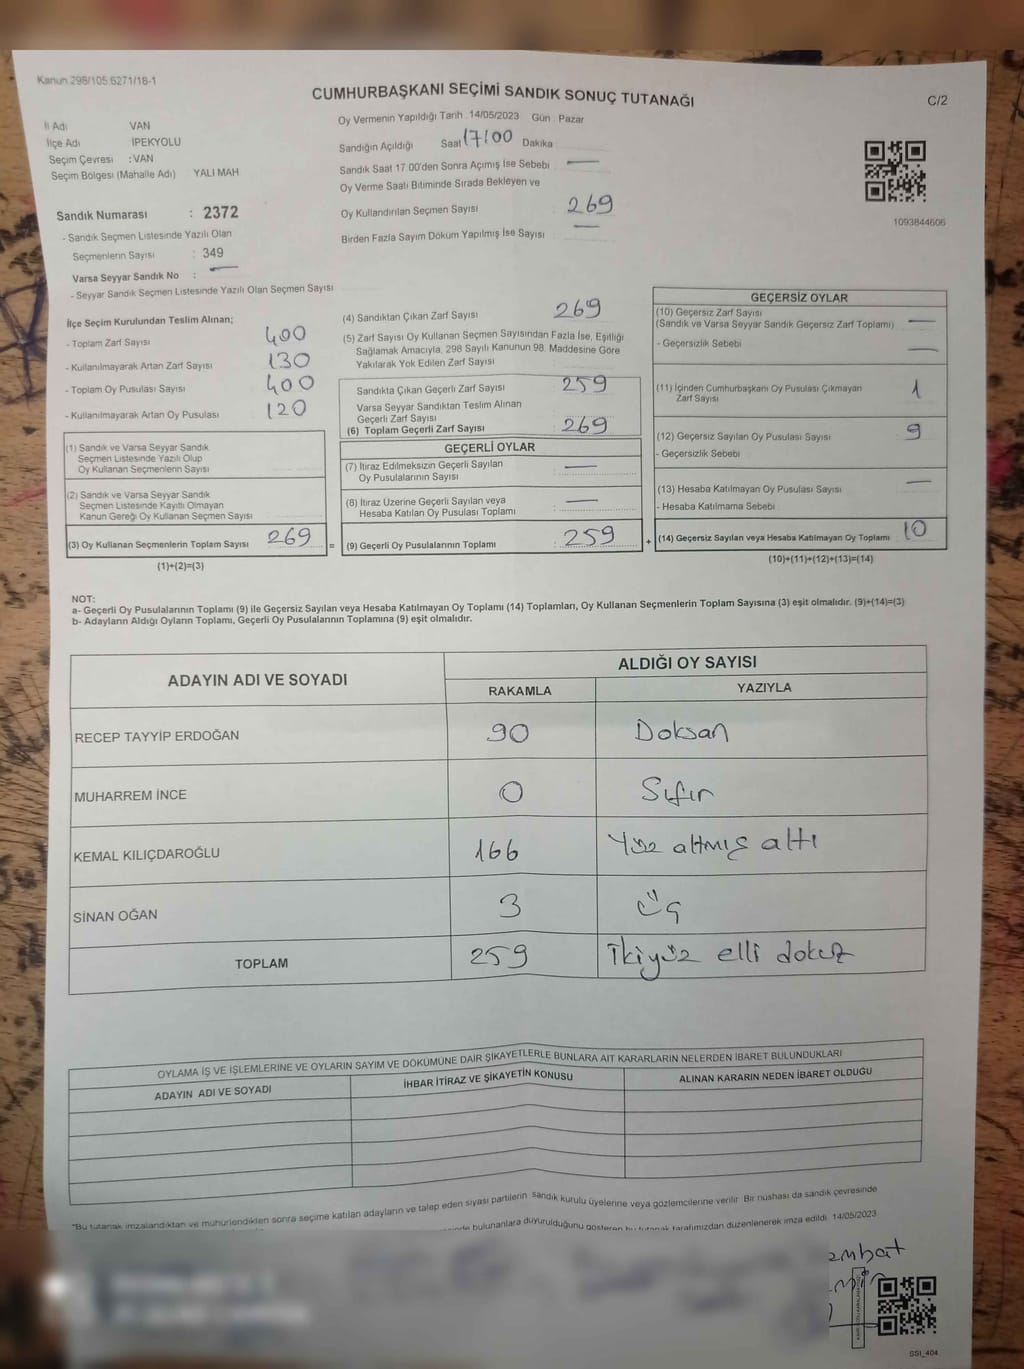 Kanun 298/105 6271/18-1
CUMHURBAŞKANI SEÇİMİ SANDIK SONUÇ TUTANAĞI
C/2
İl Adı VAN
İlçe Adı İPEKYOLU
Seçim Çevresi : VAN
Seçim Bölgesi (Mahalle Adı) YALI MAH
Sandık Numarası : 2372
- Sandık Seçmen Listesinde Yazılı Olan
Seçmenlerin Sayısı : 349
Varsa Seyyar Sandık No : —
- Seyyar Sandık Seçmen Listesinde Yazılı Olan Seçmen Sayısı
Oy Vermenin Yapıldığı Tarih : 14/05/2023 Gün : Pazar
Sandığın Açıldığı Saat 17:00 Dakika
Sandık Saat 17.00'den Sonra Açımış İse Sebebi : —
Oy Verme Saati Bitiminde Sırada Bekleyen ve
Oy Kullandırılan Seçmen Sayısı : 269
Birden Fazla Sayım Döküm Yapılmış İse Sayısı : —
1093844606
İlçe Seçim Kurulundan Teslim Alınan;
- Toplam Zarf Sayısı 400
- Kullanılmayarak Artan Zarf Sayısı 130
- Toplam Oy Pusulası Sayısı 400
- Kullanılmayarak Artan Oy Pusulası 120
(1) Sandık ve Varsa Seyyar Sandık
Seçmen Listesinde Yazılı Olup
Oy Kullanan Seçmenlerin Sayısı
(2) Sandık ve Varsa Seyyar Sandık
Seçmen Listesinde Kayıtlı Olmayan
Kanun Gereği Oy Kullanan Seçmen Sayısı
(3) Oy Kullanan Seçmenlerin Toplam Sayısı 269
(1)+(2)=(3)
(4) Sandıktan Çıkan Zarf Sayısı 269
(5) Zarf Sayısı Oy Kullanan Seçmen Sayısından Fazla İse, Eşitliği
Sağlamak Amacıyla, 298 Sayılı Kanunun 98. Maddesine Göre
Yakılarak Yok Edilen Zarf Sayısı
Sandıkta Çıkan Geçerli Zarf Sayısı : 259
Varsa Seyyar Sandıktan Teslim Alınan
Geçerli Zarf Sayısı
(6) Toplam Geçerli Zarf Sayısı : 269
GEÇERLİ OYLAR
(7) İtiraz Edilmeksizin Geçerli Sayılan
Oy Pusulalarının Sayısı : —
(8) İtiraz Üzerine Geçerli Sayılan veya
Hesaba Katılan Oy Pusulası Toplamı : —
= (9) Geçerli Oy Pusulalarının Toplamı : 259
GEÇERSİZ OYLAR
(10) Geçersiz Zarf Sayısı
(Sandık ve Varsa Seyyar Sandık Geçersiz Zarf Toplamı) —
- Geçersizlik Sebebi —
(11) İçinden Cumhurbaşkanı Oy Pusulası Çıkmayan
Zarf Sayısı 1
(12) Geçersiz Sayılan Oy Pusulası Sayısı 9
- Geçersizlik Sebebi
(13) Hesaba Katılmayan Oy Pusulası Sayısı —
- Hesaba Katılmama Sebebi
+ (14) Geçersiz Sayılan veya Hesaba Katılmayan Oy Toplamı 10
(10)+(11)+(12)+(13)=(14)
NOT:
a- Geçerli Oy Pusulalarının Toplamı (9) ile Geçersiz Sayılan veya Hesaba Katılmayan Oy Toplamı (14) Toplamları, Oy Kullanan Seçmenlerin Toplam Sayısına (3) eşit olmalıdır. (9)+(14)=(3)
b- Adayların Aldığı Oyların Toplamı, Geçerli Oy Pusulalarının Toplamına (9) eşit olmalıdır.
ADAYIN ADI VE SOYADI ALDIĞI OY SAYISI
RAKAMLA YAZIYLA
RECEP TAYYİP ERDOĞAN 90 Doksan
MUHARREM İNCE 0 Sıfır
KEMAL KILIÇDAROĞLU 166 Yüz altmış altı
SİNAN OĞAN 3 üç
TOPLAM 259 ikiyüz elli dokuz
OYLAMA İŞ VE İŞLEMLERİNE VE OYLARIN SAYIM VE DÖKÜMÜNE DAİR ŞİKAYETLERLE BUNLARA AİT KARARLARIN NELERDEN İBARET BULUNDUKLARI
ADAYIN ADI VE SOYADI İHBAR İTİRAZ VE ŞİKAYETİN KONUSU ALINAN KARARIN NEDEN İBARET OLDUĞU
"Bu tutanak imzalandıktan ve mühürlendikten sonra seçime katılan adayların ve talep eden siyasi partilerin sandık kurulu üyelerine veya gözlemcilerine verilir. Bir nüshası da sandık çevresinde
bulunanlara duyurulduğunu gösteren bu tutanak tarafımızdan düzenlenerek imza edildi. 14/05/2023
SSI_404